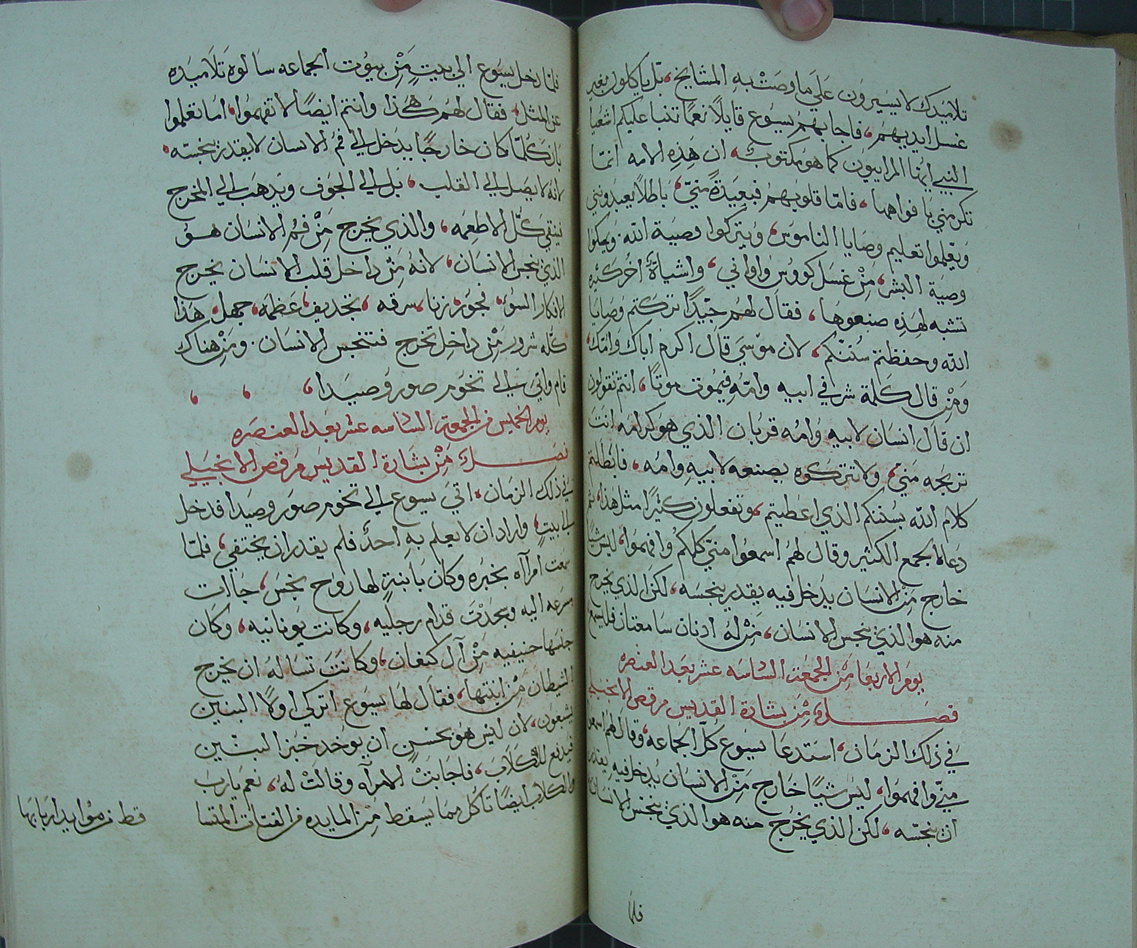 تلاميدك لا يسيرون على ما وصت به المشايخ، بل ياكلون بغير
غسل ايديهم، فاجابهم يسوع قايلاً نعما تنبا عليكم اشعيا
النبي ايها المرايون كما هو مكتوب، ان هذه الامه انما
تكرمني بافواهها، فاما قلوبهم فبعيدة مني، باطلاً يعبدونني
ويعلموا تعليم وصايا الناموس، ويتركوا وصية الله ويمسكوا
وصية البشر، من غسل كووس واواني، واشياة اخر كثيره
تشبه لهذه صنعوها، فقال لهم جيداً تركتم وصايا
الله وحفظتم سنتكم، لان موسي قال اكرم اباك وامك،
ومن قال كلمة شر في ابيه وامه فيموت موتاً، انتم تقولون
ان قال انسان لابيه وامه قربان الذي هو كرامه انت
تربحه مني، ولا تتركوه يصنعه لابيه وامه، فابطلتم
كلام الله بسنتكم الذي اعطيتم، وتفعلون كثيراً مثل هذا، ثم
دعاة الجمع الكثير وقال لهم اسمعوا مني كلكم وافهموا، ليس شيا
خارج من الانسان يدخل فيه يقدر ينجسه، لكن الذي يخرج
منه هو الذي ينجس الانسان، من له ادنان سامعتان فليسمع
يوم الاربعا من الجمعة السادسه عشر بعد العنصره
فصل من بشارة القديس مرقص الانجيلي
في ذلك الزمان، استدعا يسوع كل الجماعه وقال لهم اسمعوا
مني وافهموا، ليس شيا خارج من الانسان يدخل فيه يقدر
ان ينجسه، لكن الذي يخرج منه هو الذي ينجس الانسان،
فلما
فلما دخل يسوع الي بيت من بيوت الجماعه سالوه تلاميده
عن المثل، فقال لهم هكذا وانتم ايضاً لا تفهموا، اما تعلموا
بان كلما كان خارجاً يدخل الي فم الانسان لا يقدر ينجسه،
لانه لا يصل الي القلب، بل الي الجوف ويدهب الي المخرج
فينقي كل الاطعمه، والذي يخرج من فم الانسان هو
الذي ينجس الانسان، لانه من داخل قلب الانسان يخرج
الافكار السوء، فجور، زنا، سرقه، تجديف، عظمه، جهل، هذا
كله شرور من داخل تخرج فتنجس الانسان، ومن هناك
قام واتي الي تخوم صور وصيدا،
يوم الخميس من الجمعة السادسه عشر بعد العنصره
فصل من بشارة القديس مرقص الانجيلي
في ذلك الزمان، اتي يسوع الي تخوم صور وصيدا فدخل
الي بيت، واراد ان لا يعلم به احد فلم يقدر ان يختفي، فلما
سمعت امراه بخبره وكان بابنة لها روح نجس، جاات
مسرعه اليه وسجدت قدام رجليه، وكانت يونانيه، وكان
جنسها حنيفيه من آل كنعان، وكانت تساله ان يخرج
الشيطان من ابنتها، فقال لها يسوع اتركي اولاً البنين
يشبعون، لان ليس هو بحسن ان يوخد خبز البنين
فيدفع للكلاب، فاجابت الامراه وقالت له، نعم يارب
والكلاب ايضاً تاكل مما يسقط من المايده من الفتات المتسا
قط من موايد اربابها